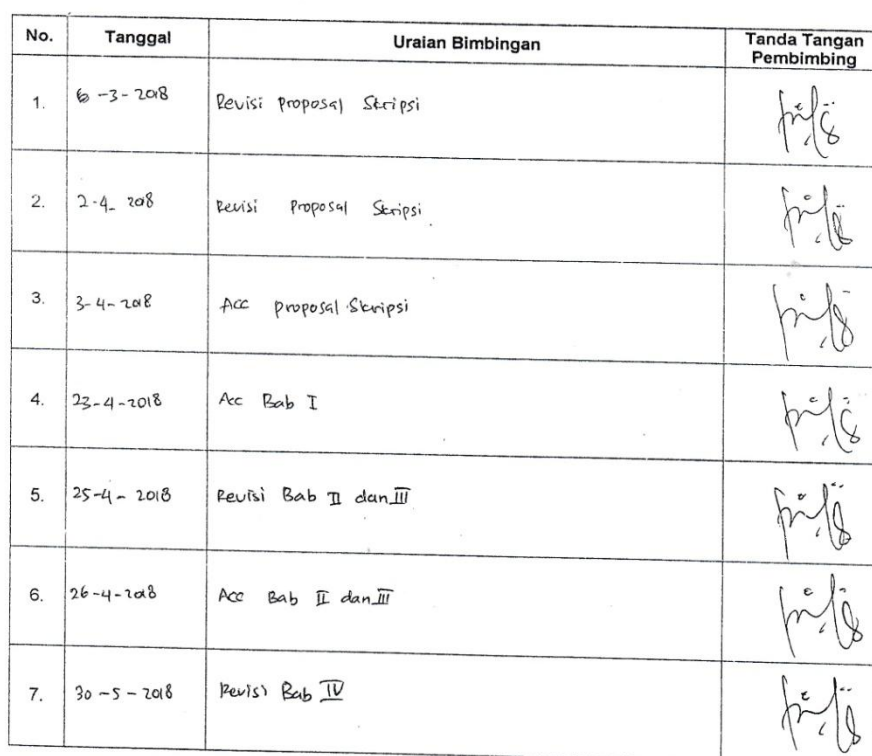 No. Tanggal Uraian Bimbingan Tanda Tangan
Pembimbing
1. 6-3-2018 Revisi Proposal Skripsi
2. 2-4-2018 Revisi Proposal Skripsi
3. 3-4-2018 Acc proposal Skripsi
4. 23-4-2018 Acc Bab I
5. 25-4-2018 Revisi Bab II dan III
6. 26-4-2018 Acc Bab II dan III
7. 30-5-2018 Revisi Bab IV